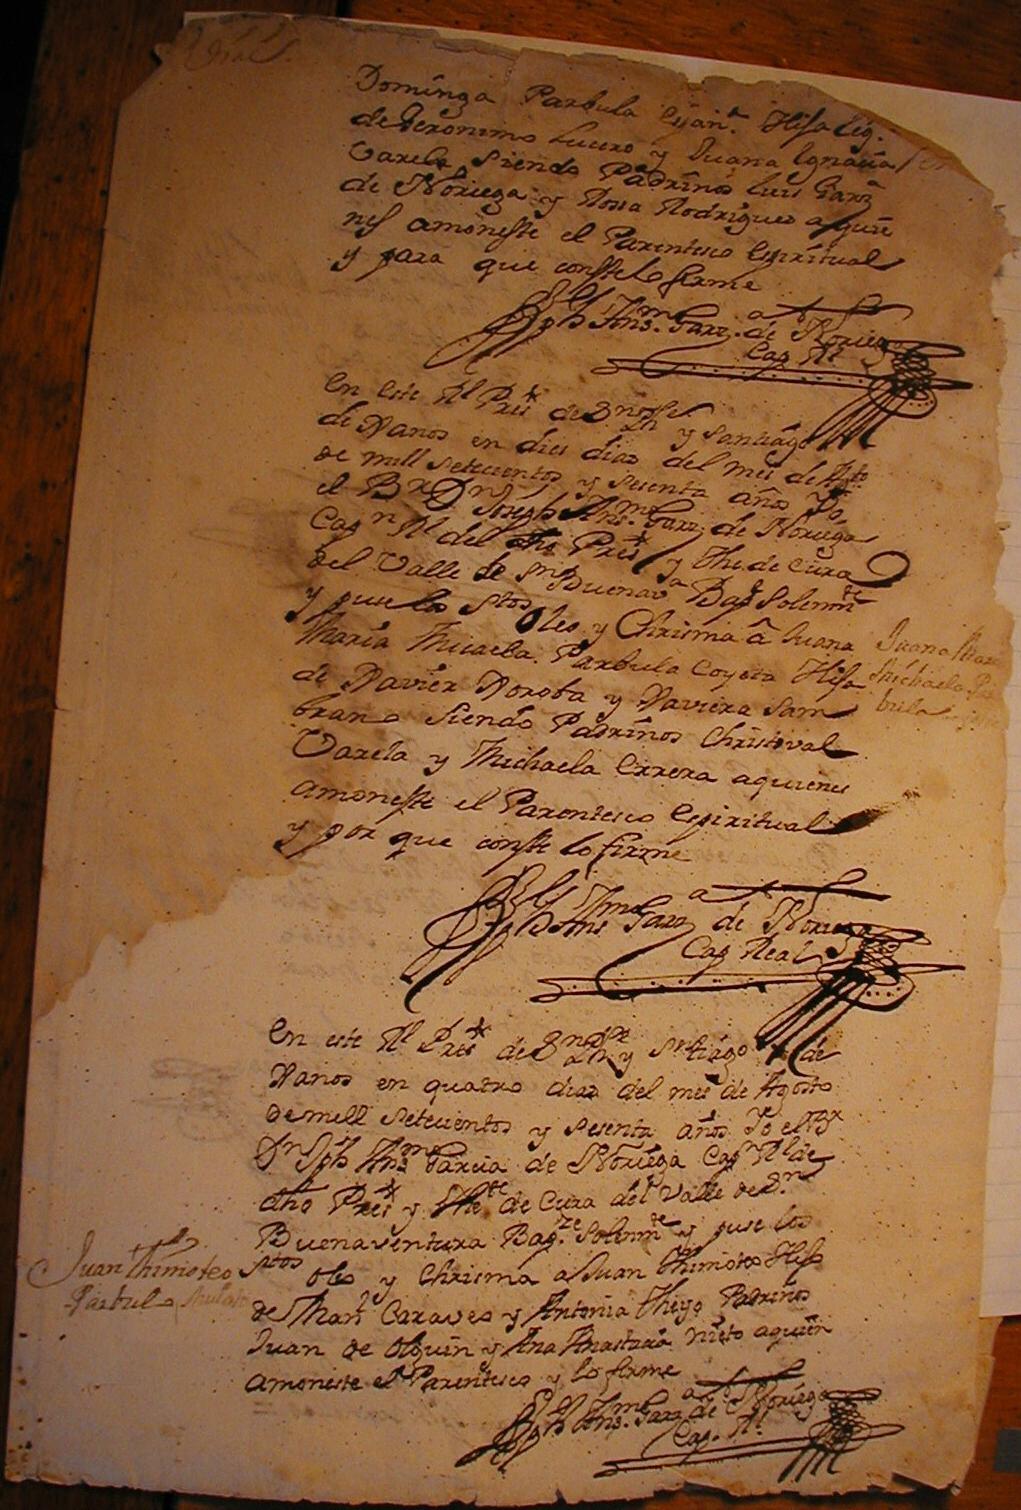 Dominga Parbula Españ.ª Hija leg.
de Geronimo Lucero y Juana Ignacia
Varela siendo Padrinos Luis Garz.ª
de Noriega y Rosa Rodrigues a quie
nes amoneste el Parentesco Espiritual
y para que conste lo firme
Jph Ant.º Garz.ª de Noriega
Cap. Rl.
En este Rl Presº de Sn Phe y Santiago
de Janos en dies dias del mes de Agto
de mill setecientos y sesenta años Yo
el Br Dn Joseph Ant.º Garz. de Noriega
Capn Rl del dho Presº y The de Cura
del Valle de Sn Buenavª Bapᵉ Solemmᵗᵉ
y puse los Stos Oleo y Chrisma â Juana
Maria Micaela Parbula Coyota Hija
de Xavier Noroba y Xaviera Sam
brano siendo Padrinos Christoval
Varela y Michaela Errera aquienes
amoneste el Parentesco Espiritual
y por que conste lo firme
Juana Mar
Michaela Par
bula
Jph Ant.º Garz.ª de Noriega
Cap Real
En este Rl Presº de Sn Phe y Sntiago de
Janos en quatro dias del mes de Agosto
de mill setecientos y sesenta años Yo el Br
Dn Jph Ant.º Garcia de Noriega Capn Rl de
dho Presº y The de Cura del Valle de Sn
Buenaventura Bapᶻᵉ Solemmᵗᵉ y puse los
Stos Oleo y Chrisma a Juan Thimoteo Hijo
de Marn Caraveo y Antonia Padrinos
Juan de Olguin y Ana Anastacia Nieto aquien
amoneste el Parentesco y lo firme
Juan Thimoteo
Parbulo Mulato
Jph Ant.º Garz.ª de Noriega
Cap. Rl.